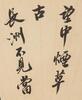 望中煙草
古
長洲不見當